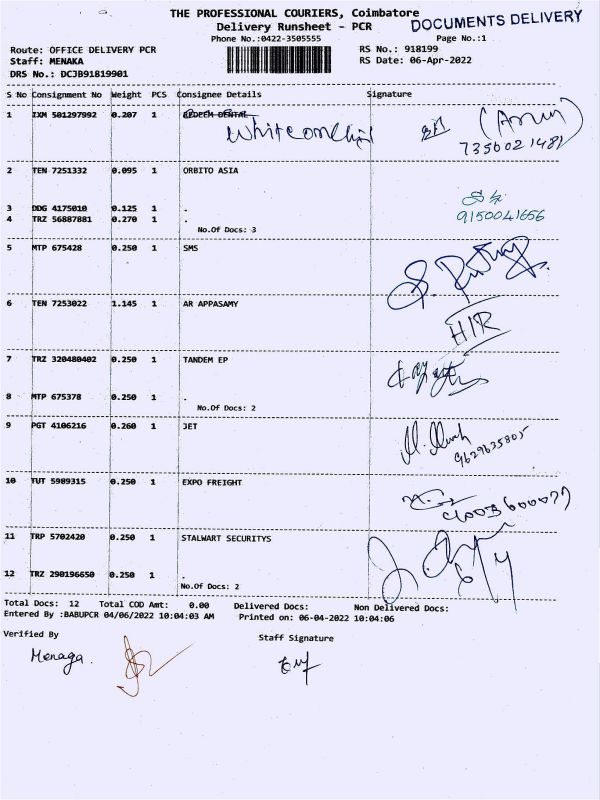 THE PROFESSIONAL COURIERS, Coimbatore
DOCUMENTS DELIVERY
Delivery Runsheet - PCR
Phone No.:0422-3505555
Page No.:1
Route: OFFICE DELIVERY PCR
RS No.: 918199
Staff: MENAKA
RS Date: 06-Apr-2022
DRS No.: DCJB91819901
S No Consignment No Weight PCS Consignee Details Signature
1 IXM 501297992 0.207 1 REDEEM DENTAL
(Arun)
7350021481
2 TEN 7251332 0.095 1 ORBITO ASIA
3 DDG 4175010 0.125 1 .
4 TRZ 56887881 0.270 1 .
9150041656
No.Of Docs: 3
5 MTP 675428 0.250 1 SMS
6 TEN 7253022 1.145 1 AR APPASAMY
7 TRZ 320480402 0.250 1 TANDEM EP
8 MTP 675378 0.250 1 .
No.Of Docs: 2
9 PGT 4106216 0.260 1 JET
9629635805
10 TUT 5989315 0.250 1 EXPO FREIGHT
11 TRP 5702420 0.250 1 STALWART SECURITYS
12 TRZ 290196650 0.250 1 .
No.Of Docs: 2
Total Docs: 12 Total COD Amt: 0.00 Delivered Docs: Non Delivered Docs:
Entered By :BABUPCR 04/06/2022 10:04:03 AM Printed on: 06-04-2022 10:04:06
Verified By
Staff Signature
Menaga.